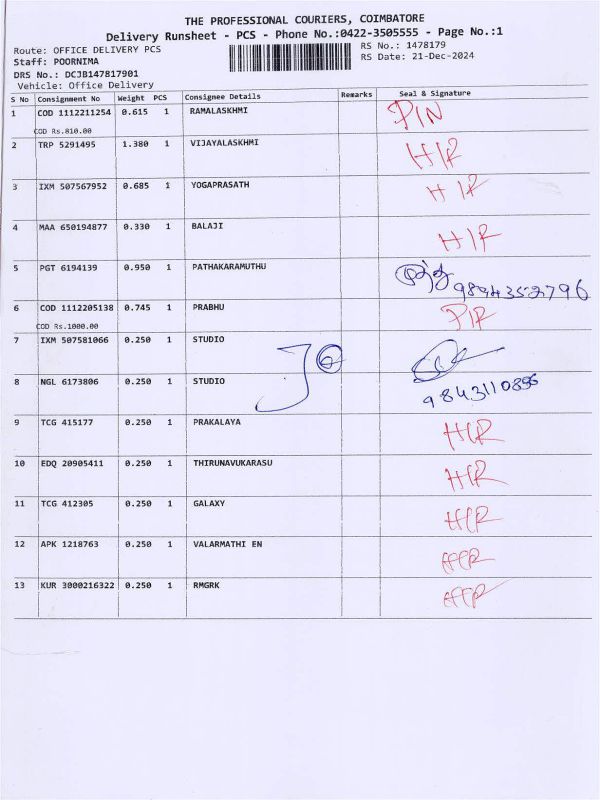 THE PROFESSIONAL COURIERS, COIMBATORE
Delivery Runsheet - PCS - Phone No.:0422-3505555 - Page No.:1
Route: OFFICE DELIVERY PCS
RS No.: 1478179
Staff: POORNIMA
RS Date: 21-Dec-2024
DRS No.: DCJB147817901
Vehicle: Office Delivery
S No Consignment No Weight PCS Consignee Details Remarks Seal & Signature
1 COD 1112211254 0.615 1 RAMALASKHMI
COD Rs.810.00
2 TRP 5291495 1.380 1 VIJAYALASKHMI HIR
3 IXM 507567952 0.685 1 YOGAPRASATH HIR
4 MAA 650194877 0.330 1 BALAJI HIR
5 PGT 6194139 0.950 1 PATHAKARAMUTHU
9894352796
6 COD 1112205138 0.745 1 PRABHU
COD Rs.1000.00
7 IXM 507581066 0.250 1 STUDIO
8 NGL 6173806 0.250 1 STUDIO
9 TCG 415177 0.250 1 PRAKALAYA HIR
10 EDQ 20905411 0.250 1 THIRUNAVUKARASU HIR
11 TCG 412305 0.250 1 GALAXY HIR
12 APK 1218763 0.250 1 VALARMATHI EN
13 KUR 3000216322 0.250 1 RMGRK